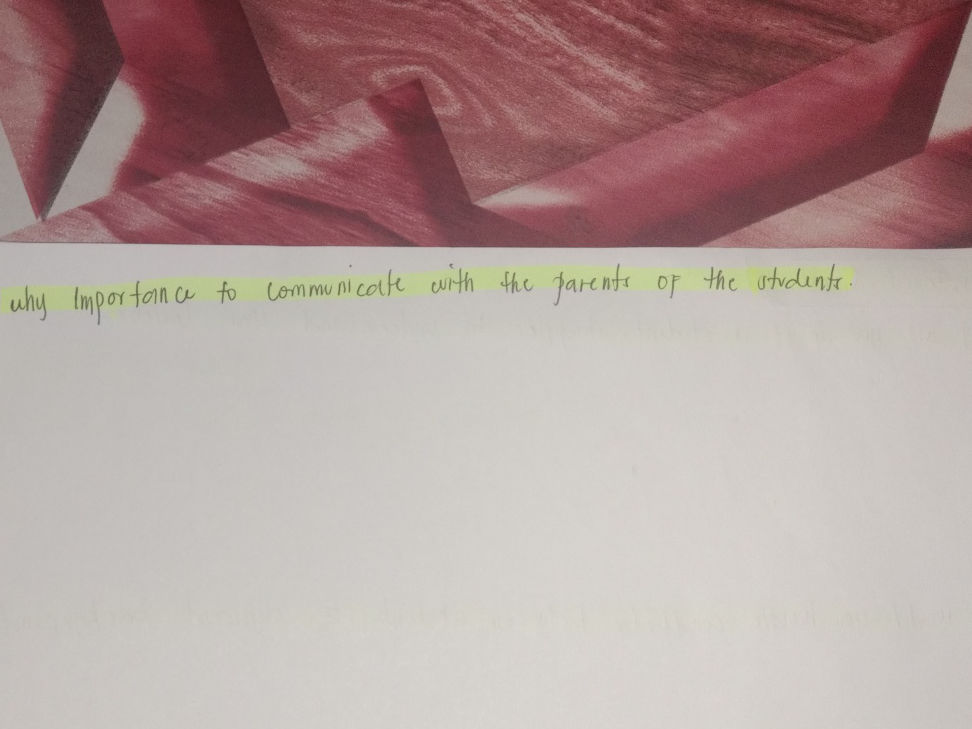 why Importance to communicate with the parents of the students.